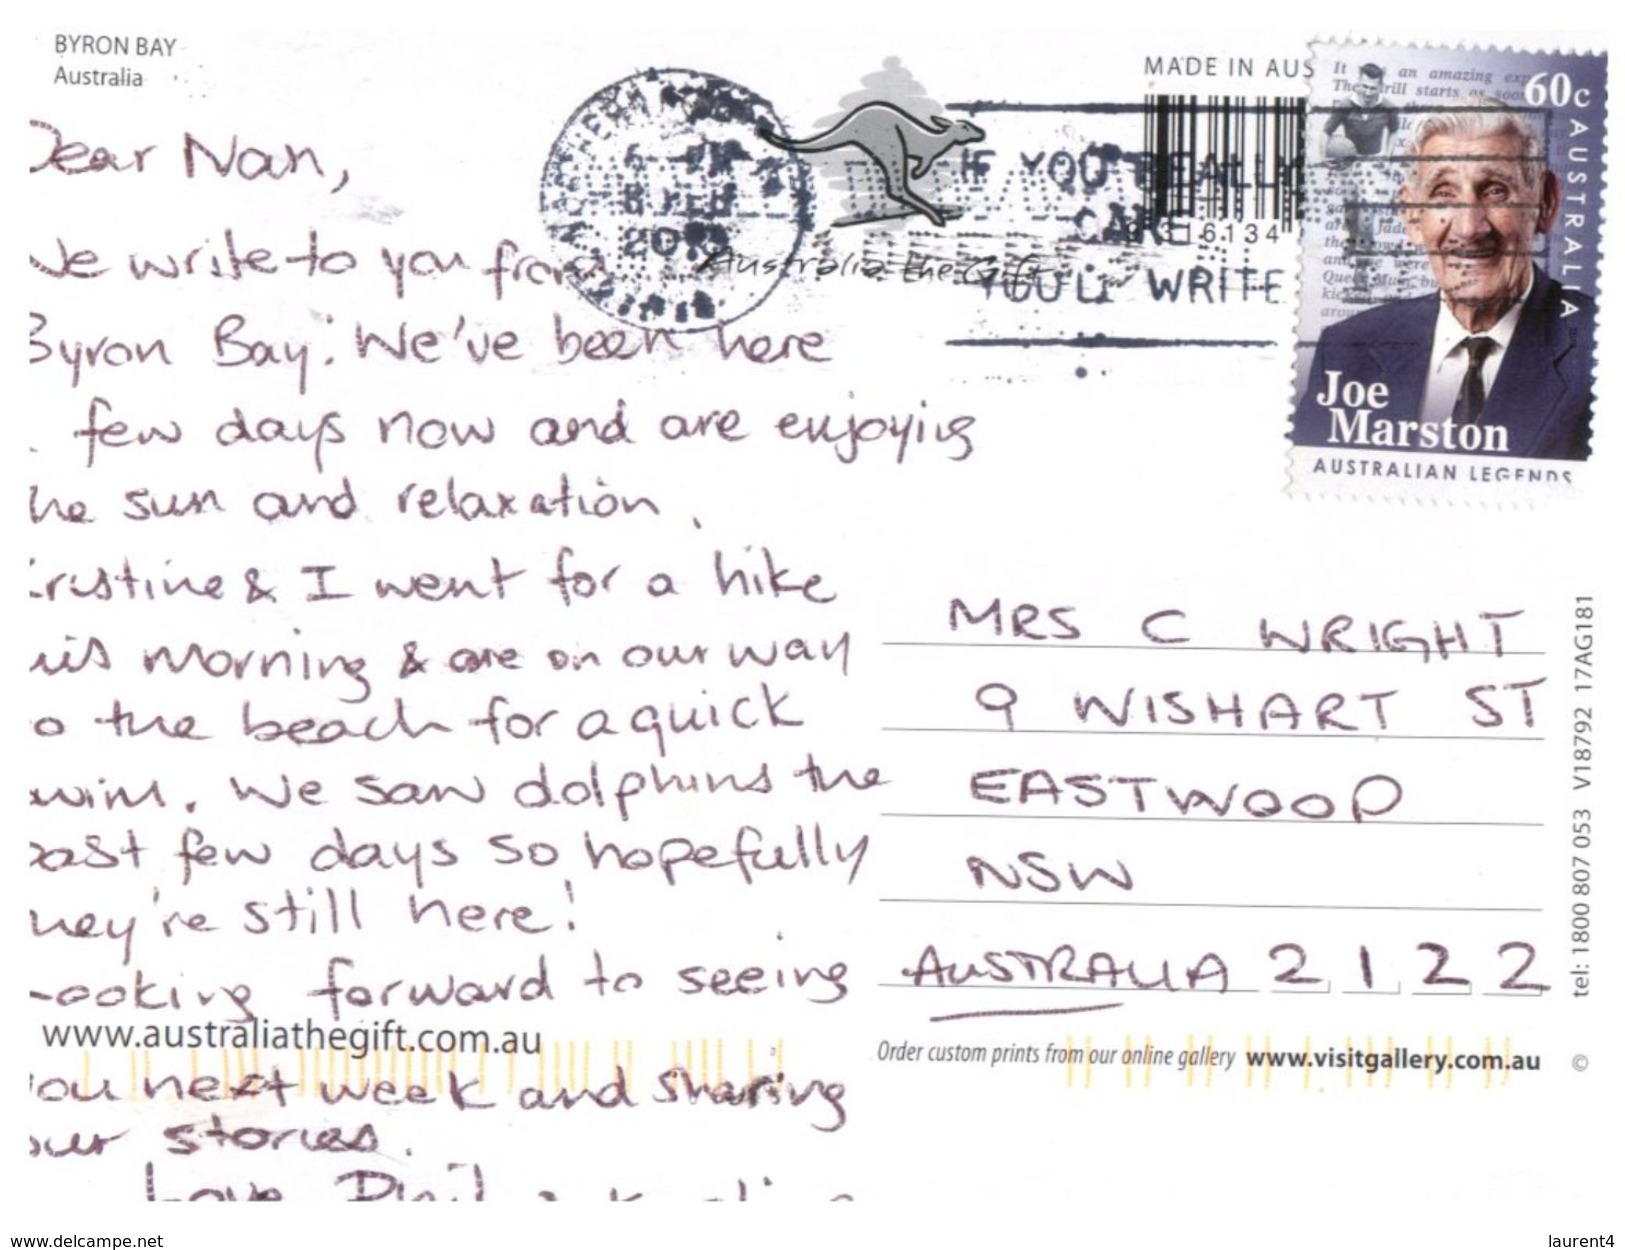 BYRON BAY
Australia
MADE IN AUS
60c
AUSTRALIA
Joe
Marston
AUSTRALIAN LEGENDS
IF YOU REALLY
CARE
YOU'LL WRITE
316134
Australia the Gift
Dear Nan,
We write to you from
Byron Bay. We've been here
few days now and are enjoying
he sun and relaxation.
ristine & I went for a hike
is morning & are on our way
o the beach for a quick
wim. We saw dolphins the
past few days so hopefully
hey're still here!
Looking forward to seeing
www.australiathegift.com.au
ou next week and sharing
our stories.
Love Phil & Kristine
MRS C WRIGHT
9 WISHART ST
EASTWOOD
NSW
AUSTRALIA 2122
Order custom prints from our online gallery www.visitgallery.com.au ©
tel: 1800 807 053 V18792 17AG181
www.delcampe.net
laurent4